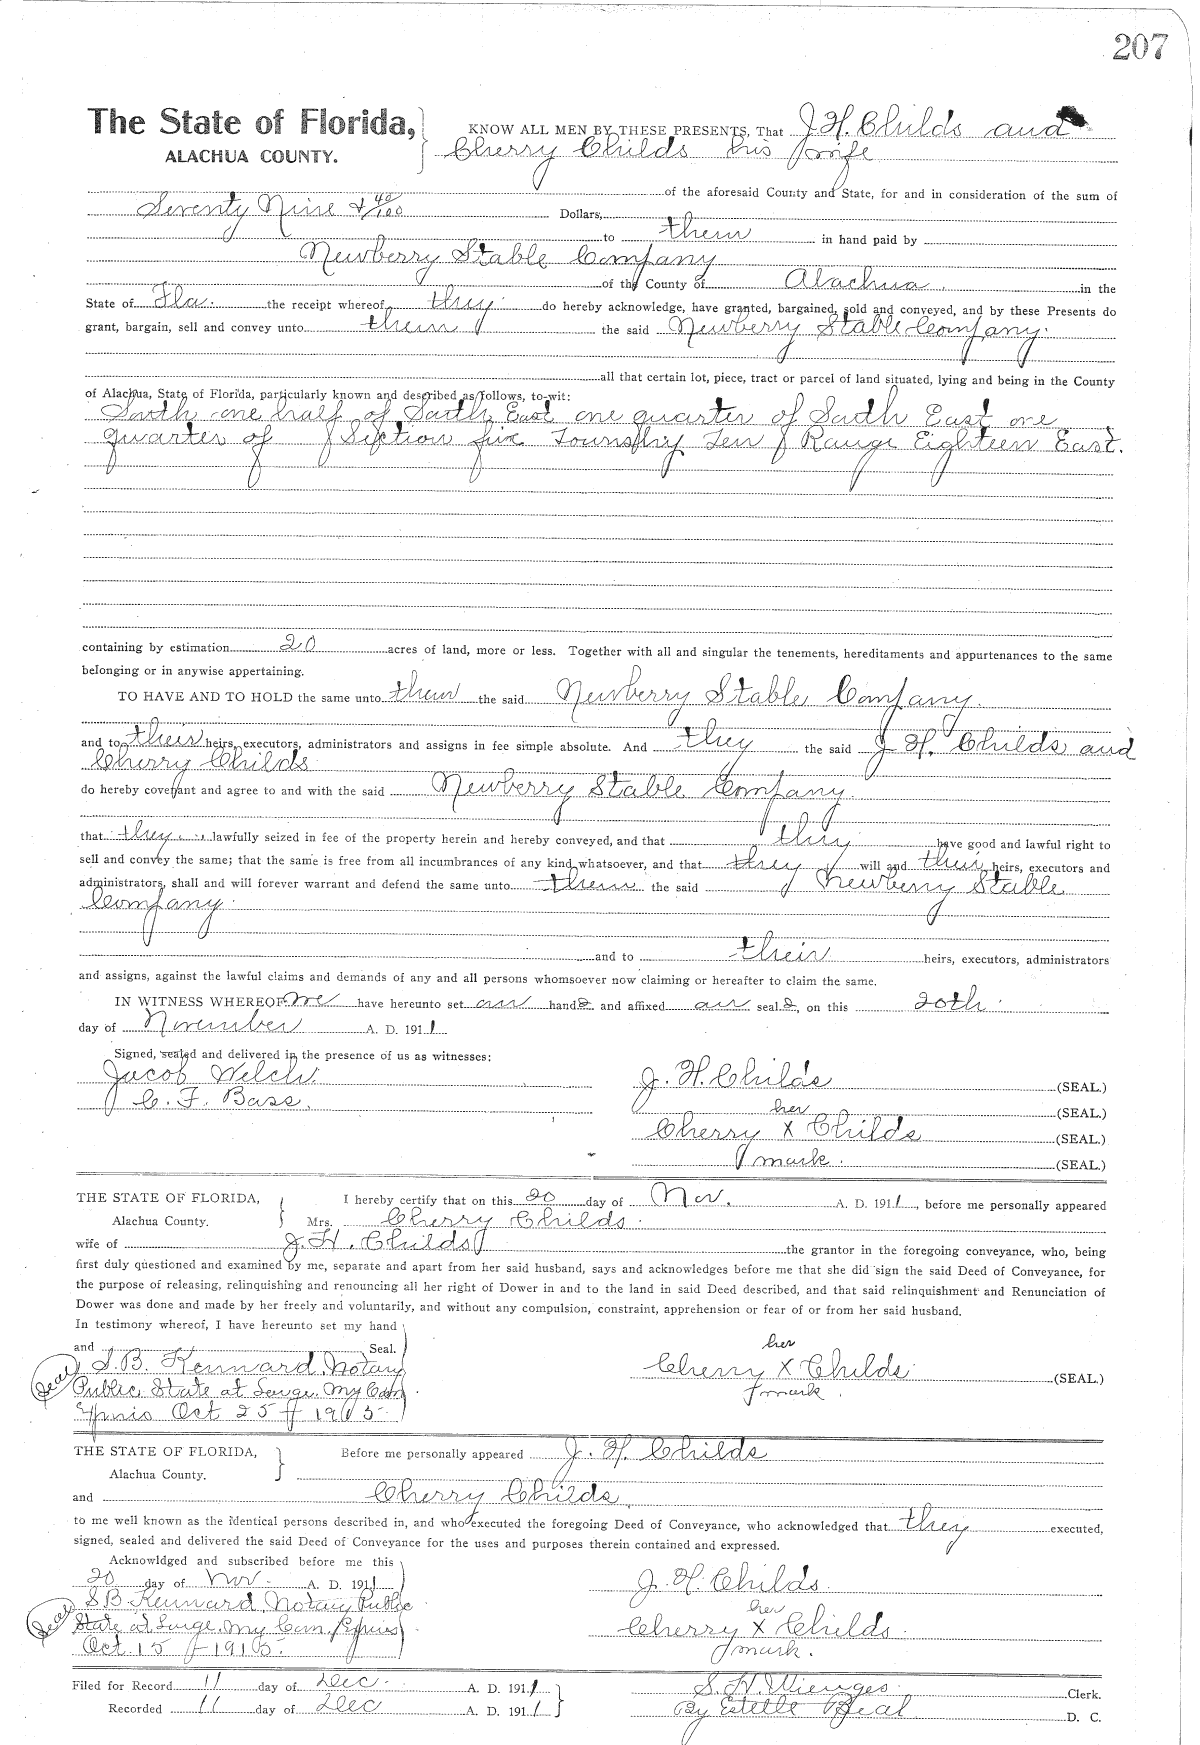 207
The State of Florida, KNOW ALL MEN BY THESE PRESENTS, That J. H. Childs and
ALACHUA COUNTY. Cherry Childs his wife
of the aforesaid County and State, for and in consideration of the sum of
Seventy Nine & 40/100 Dollars,
to them in hand paid by
Newberry Stable Company
of the County of Alachua in the
State of Fla. the receipt whereof they do hereby acknowledge, have granted, bargained, sold and conveyed, and by these Presents do
grant, bargain, sell and convey unto them the said Newberry Stable Company.
all that certain lot, piece, tract or parcel of land situated, lying and being in the County
of Alachua, State of Florida, particularly known and described as follows, to-wit:
South one half of South East one quarter of South East one
quarter of Section six Township Ten Range Eighteen East.
containing by estimation 20 acres of land, more or less. Together with all and singular the tenements, hereditaments and appurtenances to the same
belonging or in anywise appertaining.
TO HAVE AND TO HOLD the same unto them the said Newberry Stable Company.
and to their heirs, executors, administrators and assigns in fee simple absolute. And they the said J. H. Childs and
Cherry Childs
do hereby covenant and agree to and with the said Newberry Stable Company.
that they lawfully seized in fee of the property herein and hereby conveyed, and that they have good and lawful right to
sell and convey the same; that the same is free from all incumbrances of any kind whatsoever, and that they will and their heirs, executors and
administrators, shall and will forever warrant and defend the same unto them the said Newberry Stable
Company.
and to their heirs, executors, administrators
and assigns, against the lawful claims and demands of any and all persons whomsoever now claiming or hereafter to claim the same.
IN WITNESS WHEREOF we have hereunto set our hands and affixed our seals, on this 20th
day of November A. D. 1911
Signed, sealed and delivered in the presence of us as witnesses:
Jacob Welch. J. H. Childs (SEAL.)
C. F. Bass. her (SEAL.)
Cherry X Childs (SEAL.)
mark. (SEAL.)
THE STATE OF FLORIDA, I hereby certify that on this 20 day of Nov. A. D. 1911, before me personally appeared
Alachua County. Mrs. Cherry Childs.
wife of J. H. Childs the grantor in the foregoing conveyance, who, being
first duly questioned and examined by me, separate and apart from her said husband, says and acknowledges before me that she did sign the said Deed of Conveyance, for
the purpose of releasing, relinquishing and renouncing all her right of Dower in and to the land in said Deed described, and that said relinquishment and Renunciation of
Dower was done and made by her freely and voluntarily, and without any compulsion, constraint, apprehension or fear of or from her said husband.
In testimony whereof, I have hereunto set my hand
and Seal. her
Seal S. B. Kennard, Notary Cherry X Childs. (SEAL.)
Public State at Large. My Com mark.
Expires Oct 25 1915
THE STATE OF FLORIDA, Before me personally appeared J. H. Childs
Alachua County.
and Cherry Childs,
to me well known as the identical persons described in, and who executed the foregoing Deed of Conveyance, who acknowledged that they executed,
signed, sealed and delivered the said Deed of Conveyance for the uses and purposes therein contained and expressed.
Acknowldged and subscribed before me this
20 day of Nov. A. D. 1911 J. H. Childs.
Seal S B Kennard, Notary Public her
State at Large. My Com. Expires Cherry X Childs.
Oct. 15 1915. mark.
Filed for Record 11 day of Dec. A. D. 1911 S. H. Wienges. Clerk.
Recorded 11 day of Dec A. D. 1911 By Estelle Beal D. C.